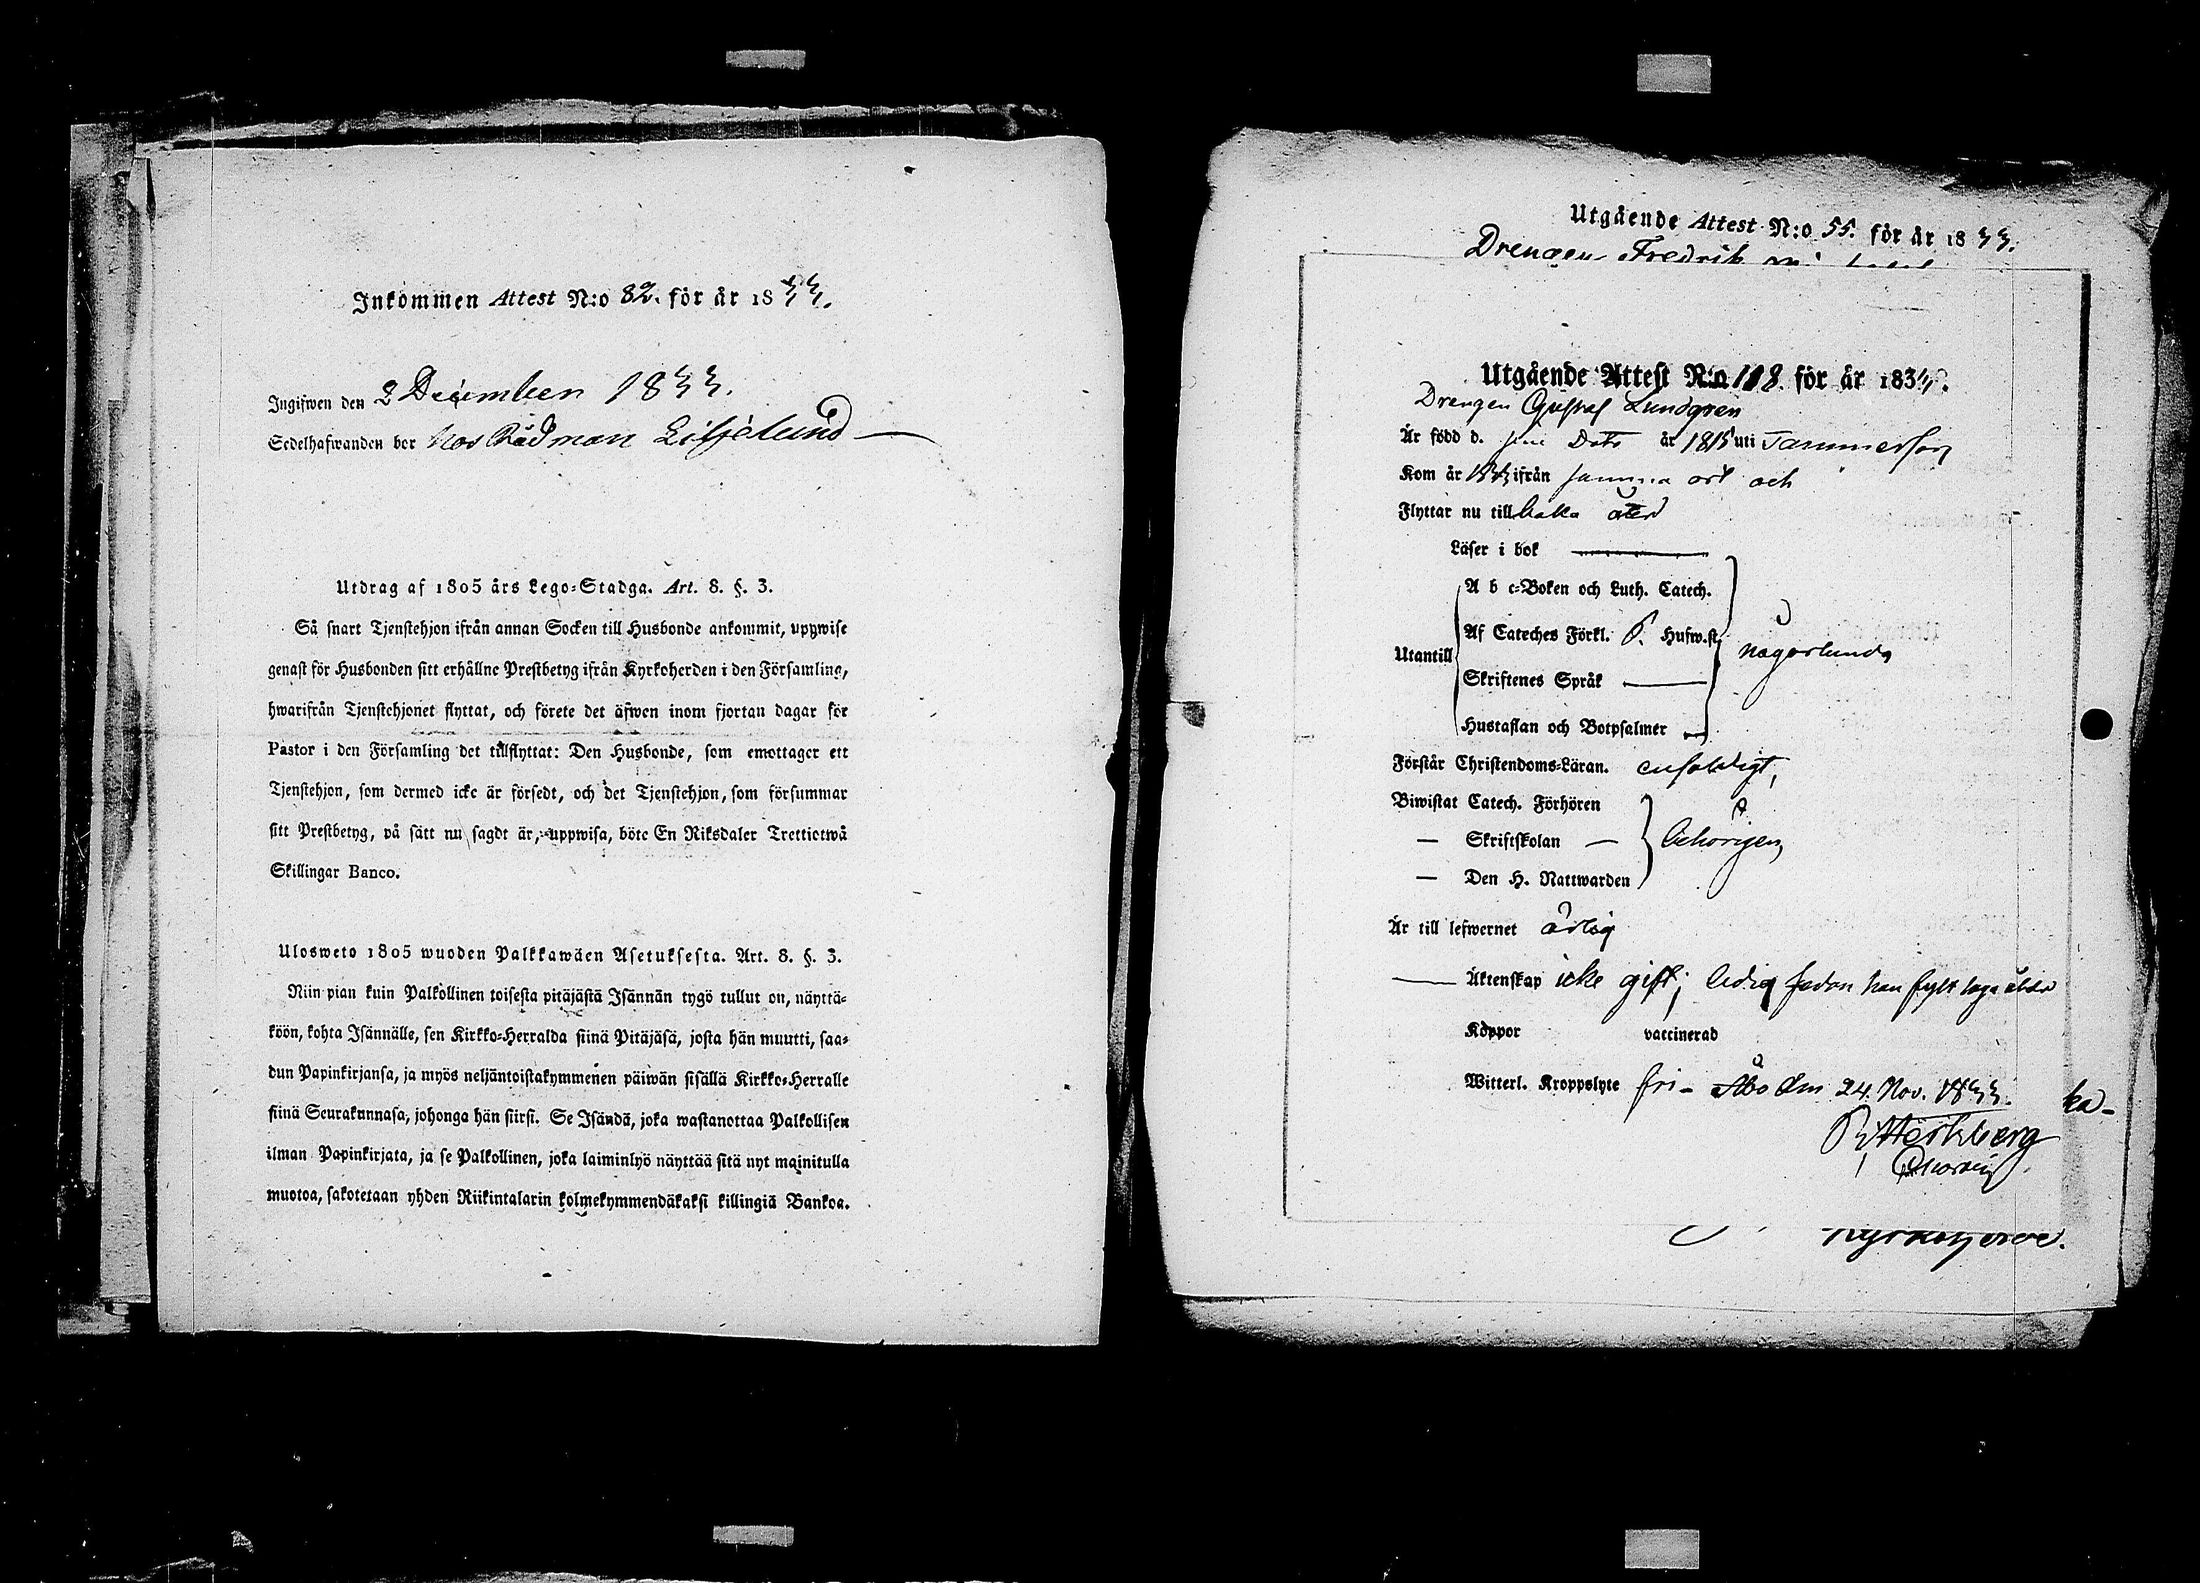 Inkommen Attest N:o 82. för år 1833.
Ingifwen den 2 December 1833.
Sedelhafwanden bor hos Rådman Liljelund
Utdrag af 1805 års Lego-Stadga. Art. 8. §. 3.
Så snart Tjenstehjon ifrån annan Socken till Husbonde ankommit, uppwise
genast för Husbonden sitt erhållne Prestbetyg ifrån Kyrkoherden i den Församling,
hwarifrån Tjenstehjonet flyttat, och förete det äfwen inom fjortan dagar för
Pastor i den Församling det tillflyttat: Den Husbonde, som emottager ett
Tjenstehjon, som dermed icke är försedt, och det Tjenstehjon, som försummar
sitt Prestbetyg, på sätt nu sagdt är, uppwisa, böte En Riksdaler Trettiotwå
Skillingar Banco.
Ulosweto 1805 wuoden Palkkawäen Asetuksesta. Art. 8. §. 3.
Niin pian kuin Palkollinen toisesta pitäjästä Isännän tygö tullut on, näyttä-
köön, kohta Isännälle, sen Kirkko-Herralda siinä Pitäjäsä, josta hän muutti, saa-
dun Papinkirjansa, ja myös neljäntoistakymmenen päiwän sisällä Kirkko-Herralle
siinä Seurakunnasa, johonga hän siirsi. Se Isändä, joka wastanottaa Palkollisen
ilman Papinkirjata, ja se Palkollinen, joka laiminlyö näyttää sitä nyt mainitulla
muotoa, sakotetaan yhden Riikintalarin kolmekymmendäkaksi killingiä Bankoa.
Utgående Attest N:o 55. för år 1833.
Drengen Fredrik
Utgående Attest N:o 118. för år 183
Drengen Gustaf Lundgren
Är född d. sine Dato år 1815 uti Tammerfors
Kom år 1833 ifrån samma ort och
Flyttar nu till baka åter
Läser i bok
A b c-Boken och Luth. Catech.
Af Cateches Förkl. P. Hufw.st.
Utantill någorlunda
Skriftenes Språk
Hustaflan och Botpsalmer
Förstår Christendoms-Läran. enfaldigt,
Biwistat Catech. Förhören
— Skriftskolan — behörigen,
— Den H. Nattwarden
Är till lefwernet ärlig
Äktenskap icke gift; ledig sedan han fyllt laga ålder
Koppor vaccinerad
Witterl. Kroppslyte fri - Åbo den 24. Nov. 1833.
ka-
Kyrkoherde.